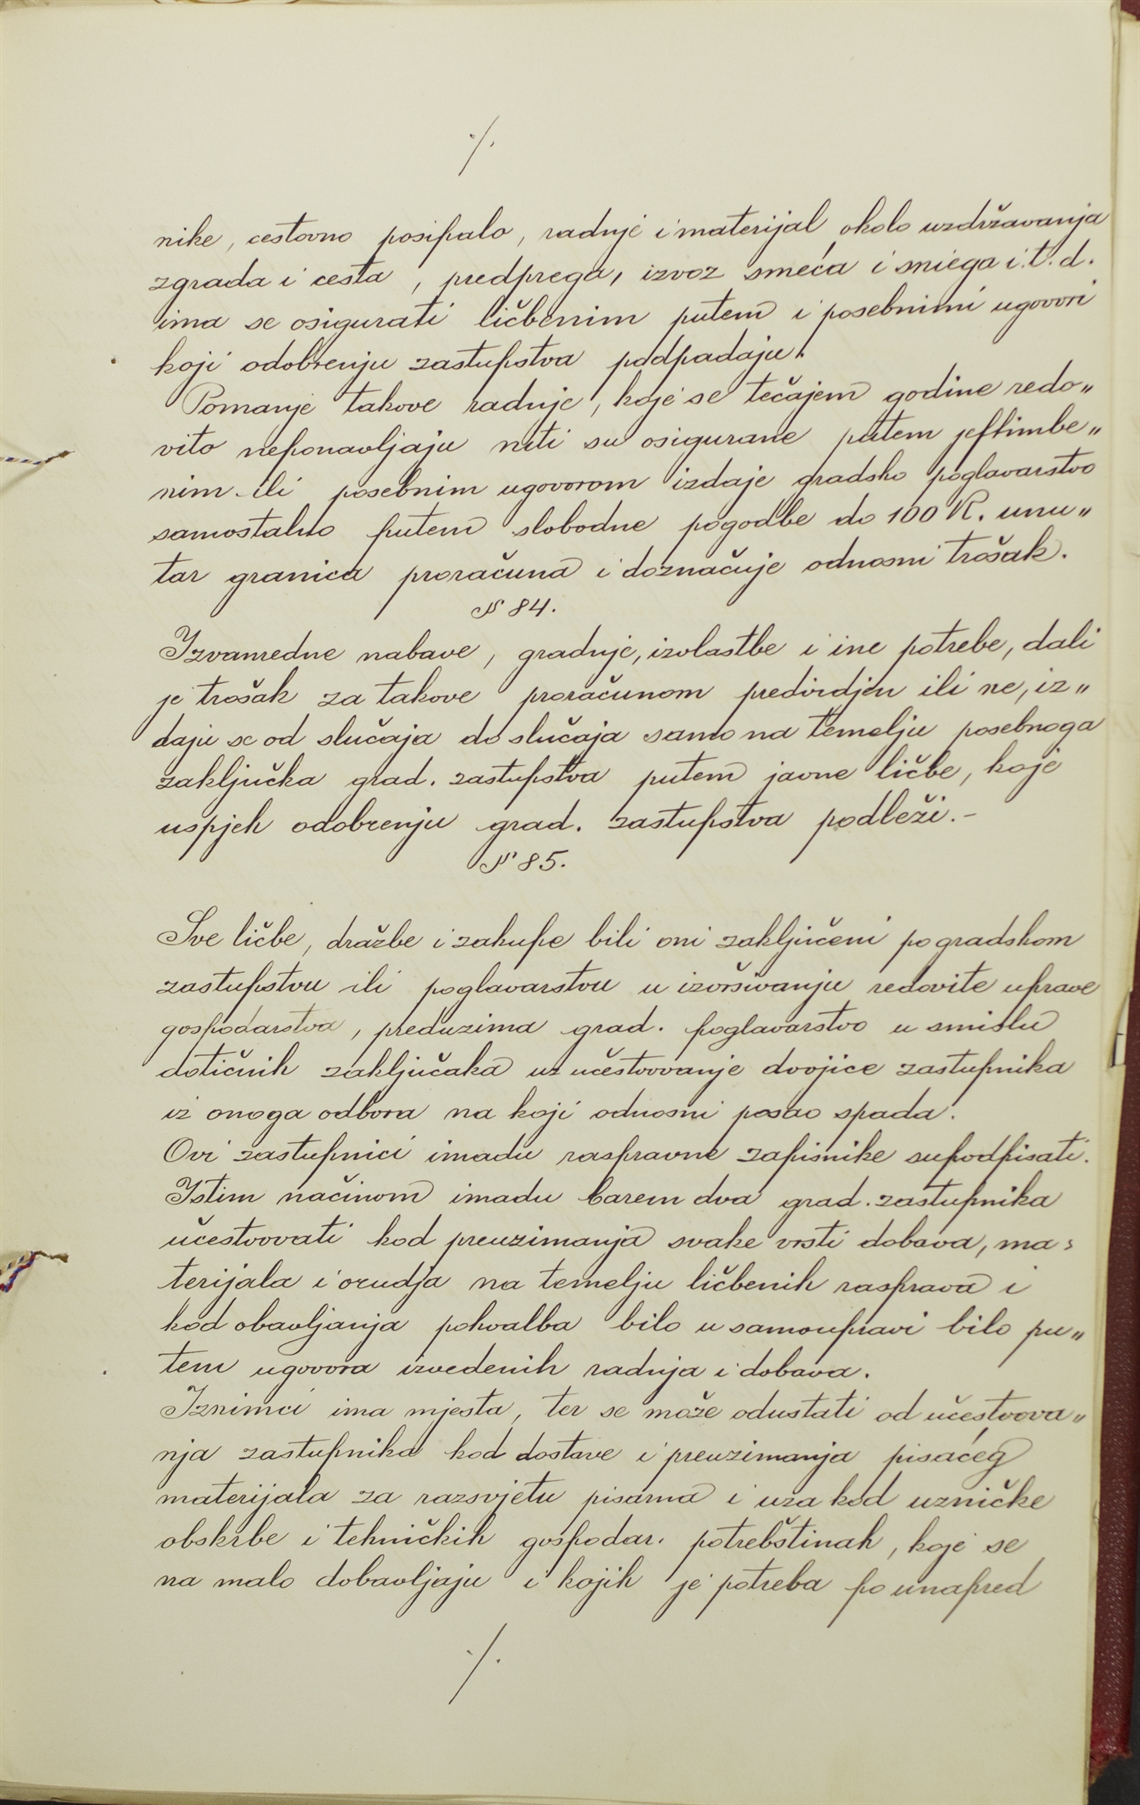 ./.
nike, cestovno posipalo, radnje i materijal okolo uzdržavanja
zgrada i cesta, predprega, izvoz smeća i sniega i. t. d.
ima se osigurati ličbenim putem i posebnimi ugovori
koji odobrenju zastupstva podpadaju.
Pomanje takove radnje, koje se tečajem godine redo„
vito neponavljaju niti su osigurane putem jeftimbe„
nim ili posebnim ugovorom izdaje gradsko poglavarstvo
samostalno putem slobodne pogodbe do 100 K. unu„
tar granica proračuna i doznačuje odnosni trošak.
§ 84.
Izvanredne nabave, gradnje, izvlastbe i ine potrebe, dali
je trošak za takove proračunom predvidjen ili ne, iz„
daju se od slučaja do slučaja samo na temelju posebnoga
zaključka grad. zastupstva putem javne ličbe, koje
uspjeh odobrenju grad. zastupstva podleži.-
§ 85.
Sve ličbe, dražbe i zakupe bili oni zaključeni po gradskom
zastupstvu ili poglavarstvu u izvršivanju redovite uprave
gospodarstva, preduzima grad. poglavarstvo u smislu
dotičnih zaključaka uz učestvovanje dvojice zastupnika
iz onoga odbora na koji odnosni posao spada.
Ovi zastupnici imadu raspravne zapisnike supodpisati.
Istim načinom imadu barem dva grad. zastupnika
učestvovati kod preuzimanja svake vrsti dobava, ma„
terijala i orudja na temelju ličbenih rasprava i
kod obavljanja pohvalba bilo u samoupravi bilo pu„
tem ugovora izvedenih radnja i dobava.
Iznimci ima mjesta, ter se može odustati od učestvova„
nja zastupnika kod dostave i preuzimanja pisaćeg
materijala za razsvjetu pisarna i uza kod uzničke
obskrbe i tehničkih gospodar. potrebštinah, koje se
na malo dobavljaju i kojih je potreba po unapred
./.